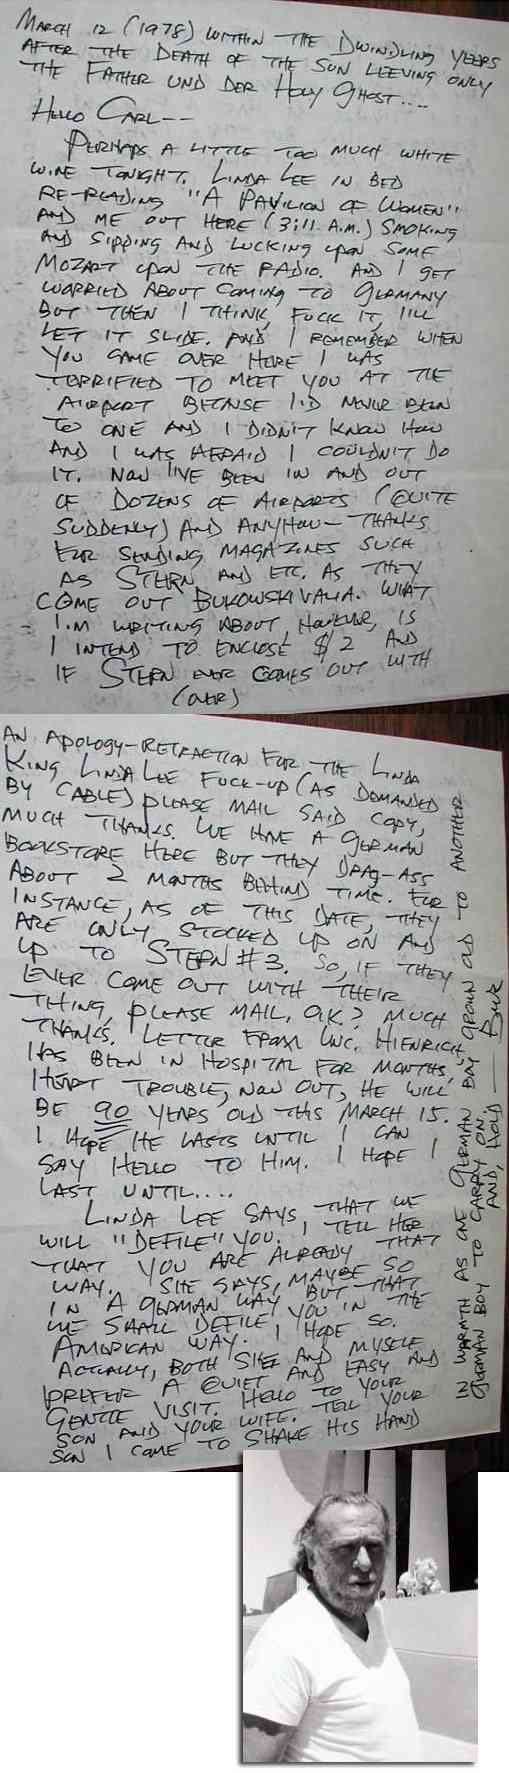 MARCH 12 (1978) WITHIN THE DWINDLING YEARS
AFTER THE DEATH OF THE SON LEEVING ONLY
THE FATHER UND DER HOLY GHOST....
HELLO CARL--
PERHAPS A LITTLE TOO MUCH WHITE
WINE TONIGHT. LINDA LEE IN BED
RE-READING "A PAVILION OF WOMEN"
AND ME OUT HERE (3:11. A.M.) SMOKING
AND SIPPING AND LUCKING UPON SOME
MOZART UPON THE RADIO. AND I GET
WORRIED ABOUT COMING TO GERMANY
BUT THEN I THINK, FUCK IT, I'LL
LET IT SLIDE. AND I REMEMBER WHEN
YOU CAME OVER HERE I WAS
TERRIFIED TO MEET YOU AT THE
AIRPORT BECAUSE I'D NEVER BEEN
TO ONE AND I DIDN'T KNOW HOW
AND I WAS AFRAID I COULDN'T DO
IT. NOW I'VE BEEN IN AND OUT
OF DOZENS OF AIRPORTS (QUITE
SUDDENLY) AND ANYHOW— THANKS
FOR SENDING MAGAZINES SUCH
AS STERN AND ETC. AS THEY
COME OUT BUKOWSKIVALIA. WHAT
I'M WRITING ABOUT, HOWEVER, IS
I INTEND TO ENCLOSE $2 AND
IF STERN EVER COMES OUT WITH
(OVER)
AN APOLOGY-RETRACTION FOR THE LINDA
KING LINDA LEE FUCK-UP (AS DEMANDED
BY CABLE) PLEASE MAIL SAID COPY,
MUCH THANKS. WE HAVE A GERMAN
BOOKSTORE HERE BUT THEY DRAG-ASS
ABOUT 2 MONTHS BEHIND TIME. FOR
INSTANCE, AS OF THIS DATE, THEY
ARE ONLY STOCKED UP ON AND
UP TO STERN #3. SO, IF THEY
EVER COME OUT WITH THEIR
THING, PLEASE MAIL, O.K.? MUCH
THANKS. LETTER FROM UNC. HIENRICH,
HAS BEEN IN HOSPITAL FOR MONTHS,
HEART TROUBLE, NOW OUT, HE WILL
BE 90 YEARS OLD THIS MARCH 15.
I HOPE HE LASTS UNTIL I CAN
SAY HELLO TO HIM. I HOPE I
LAST UNTIL....
LINDA LEE SAYS, THAT WE
WILL "DEFILE" YOU. I TELL HER
THAT YOU ARE ALREADY THAT
WAY. SHE SAYS, MAYBE SO
IN A GERMAN WAY BUT THAT
WE SHALL DEFILE YOU IN THE
AMERICAN WAY. I HOPE SO.
ACTUALLY, BOTH SHE AND MYSELF
PREFER A QUIET AND EASY AND
GENTLE VISIT. HELLO TO YOUR
SON AND YOUR WIFE. TELL YOUR
SON I COME TO SHAKE HIS HAND
IN WARMTH AS ONE GERMAN BOY GROWN OLD TO ANOTHER
GERMAN BOY TO CARRY ON.
AND, HOLD — Buk